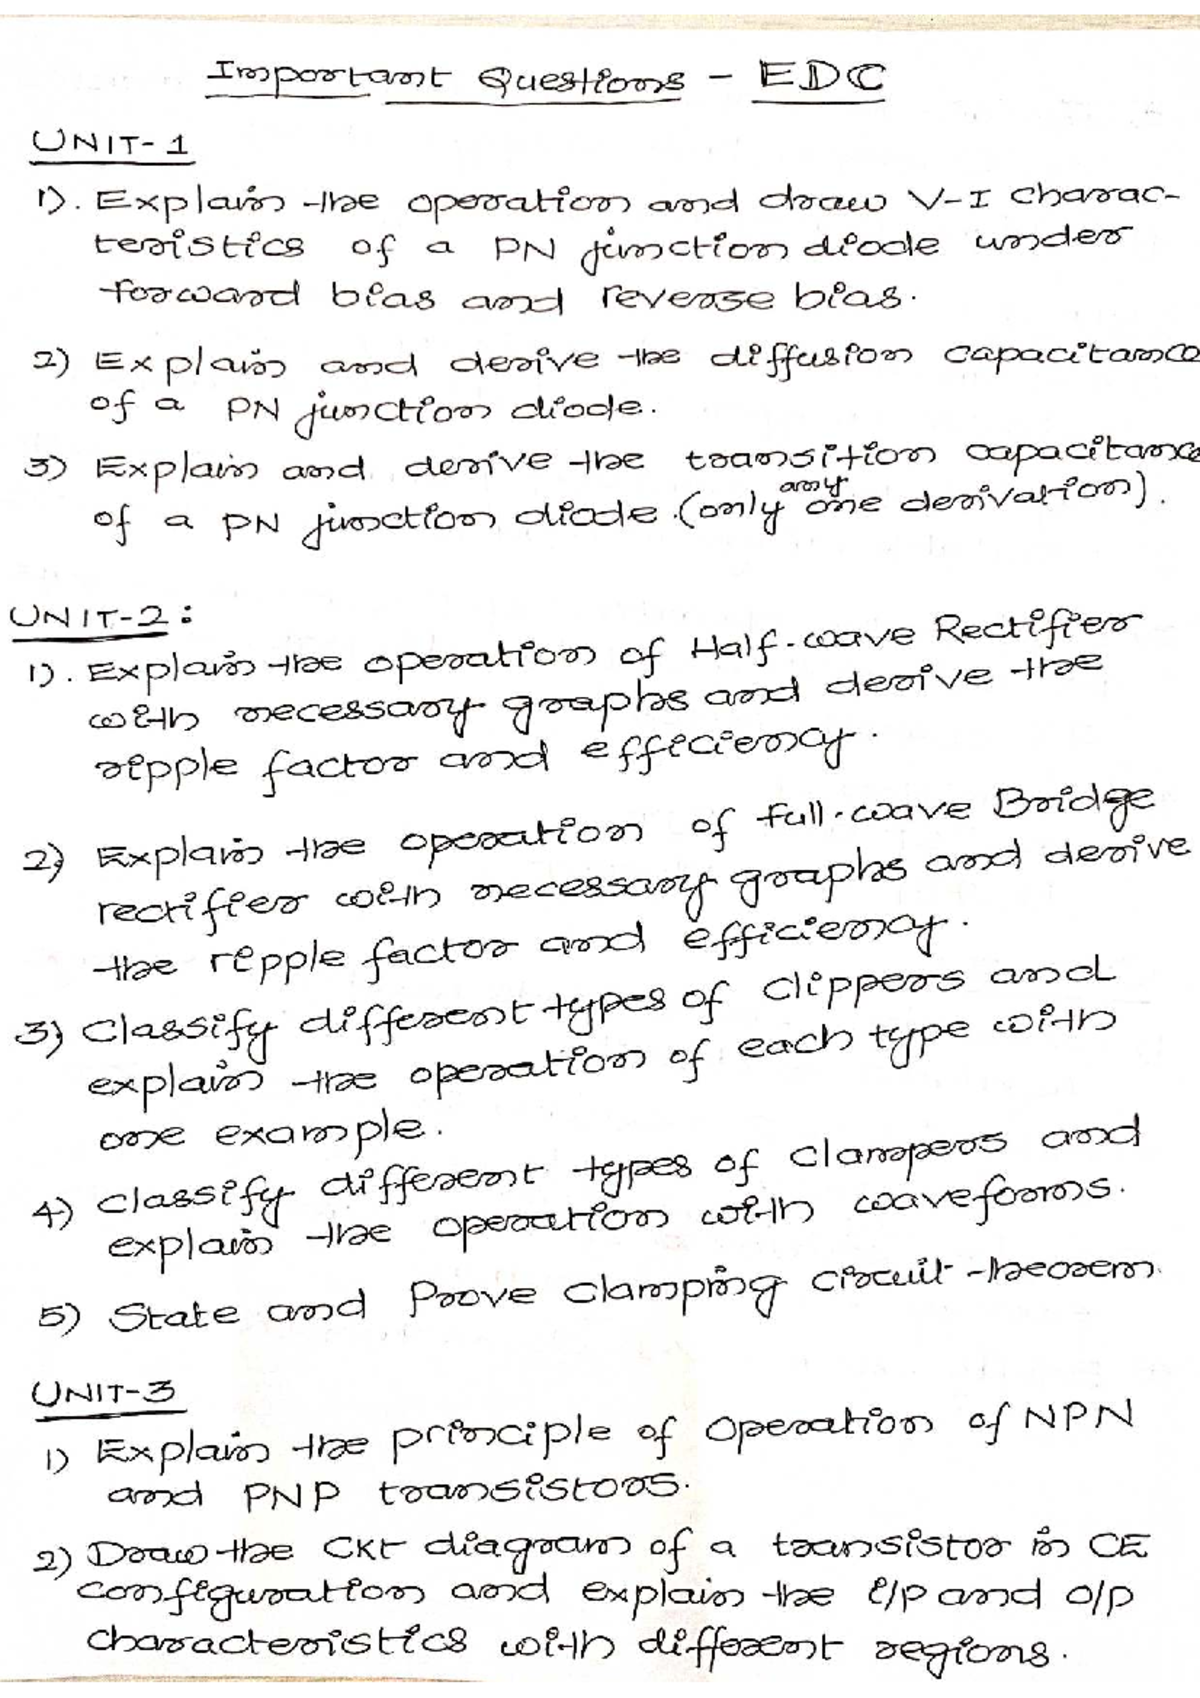 Important Questions - EDC
UNIT-1
1). Explain the operation and draw V-I charac-
teristics of a PN junction diode under
forward bias and reverse bias.
2) Explain and derive the diffusion capacitance
of a PN junction diode.
3) Explain and derive the transition capacitance
of a PN junction diode. (only any one derivation).
UNIT-2:
1). Explain the operation of Half-wave Rectifier
with necessary graphs and derive the
ripple factor and efficiency.
2) Explain the operation of full-wave Bridge
rectifier with necessary graphs and derive
the ripple factor and efficiency.
3) Classify different types of clippers and
explain the operation of each type with
one example.
4) Classify different types of clampers and
explain the operation with waveforms.
5) State and Prove Clamping circuit theorem.
UNIT-3
1) Explain the principle of operation of NPN
and PNP transistors.
2) Draw the CKt diagram of a transistor in CE
configuration and explain the i/p and o/p
characteristics with different regions.